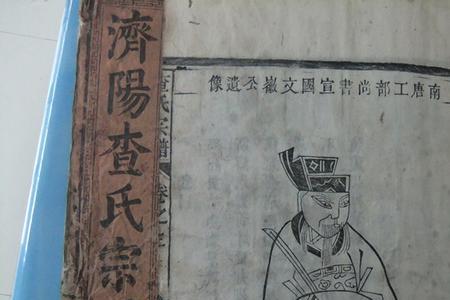 濟陽查氏宗
南唐工部尚書宣國文徽公遺像
查氏宗譜
卷之